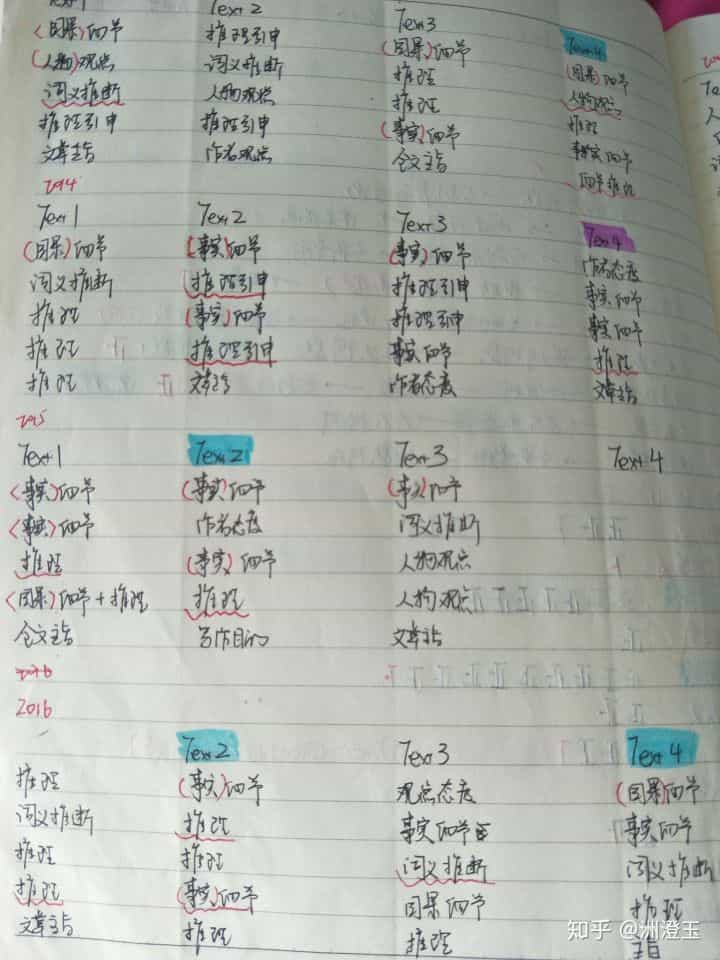 Text 1 Text 2 Text 3 Text 4
(因果)细节 推理引申 (因果)细节 (因果)细节
(人物)观点 词义推断 推理 人物观点
词义推断 人物观点 推理 推理
推理引申 推理引申 (事实)细节 事实细节
文章主旨 作者观点 全文主旨 细节推理
2014
Text 1 Text 2 Text 3 Text 4
(因果)细节 (事实)细节 (事实)细节 作者态度
词义推断 推理引申 推理引申 事实细节
推理 (事实)细节 推理引申 事实细节
推理 推理引申 事实细节 推理
推理 文章主旨 作者态度 文章主旨
2015
Text 1 Text 2 Text 3 Text 4
(事实)细节 (事实)细节 (事实)细节
(事实)细节 作者态度 词义推断
推理 (事实)细节 人物观点
(因果)细节+推理 推理 人物观点
全文主旨 写作目的 文章主旨
2016
Text 2 Text 3 Text 4
推理 (事实)细节 观点态度 (因果)细节
词义推断 推理 事实细节 事实细节
推理 推理 词义推断 词义推断
推理 (事实)细节 因果细节 推理
文章主旨 推理 推理 主旨
知乎 @洲澄玉